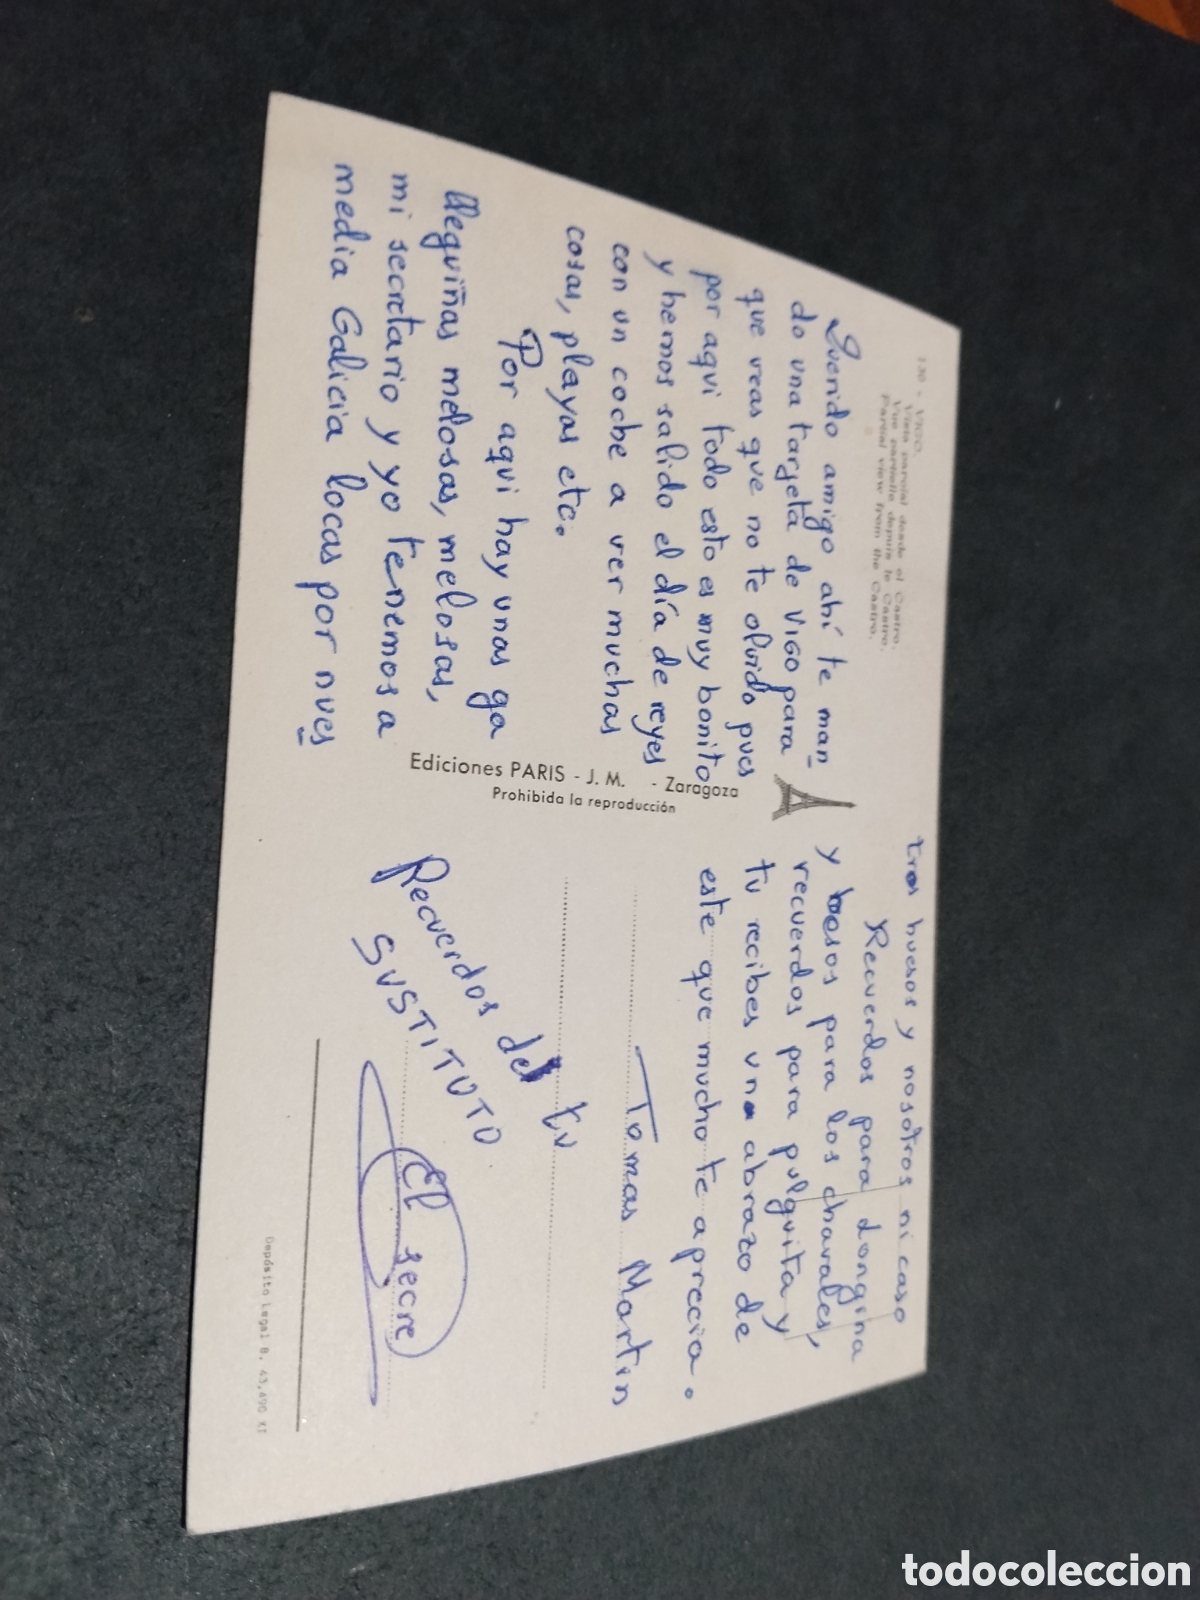 130 - VIGO.
Vista parcial desde el Castro.
Vue partielle depuis le Castro.
Partial view from the Castro.
Querido amigo ahí te man
do una tarjeta de VIGO para
que veas que no te olvido pues
por aqui todo esto es muy bonito
y hemos salido el día de reyes
con un coche a ver muchas
cosas, playas etc.
Por aqui hay unas ga
lleguiñas melosas, melosas,
mi secretario y yo tenemos a
media Galicia locas por nues
Ediciones PARIS - J. M. - Zaragoza
Prohibida la reproducción
tros huesos y nosotros ni caso
Recuerdos para dongina
y besos para los chavales,
recuerdos para pulguita y
tu recibes un abrazo de
este que mucho te aprecia.
Tomas Martin
Recuerdos de tu
SUSTITUTO
El secre
Depósito Legal B. 43,490 XI
todocoleccion